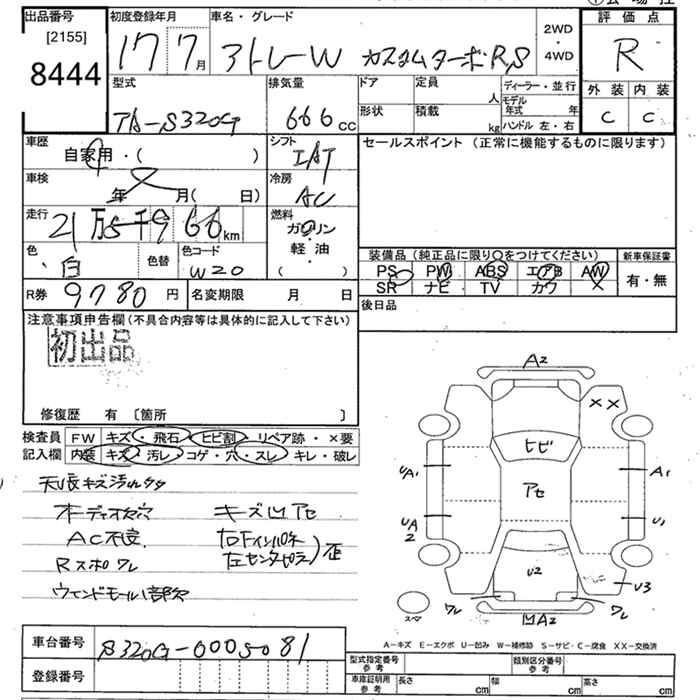 出品番号
[2155]
8444
初度登録年月
17 7月
車名・グレード
アトレーW カスタムターボRS
2WD
・
4WD
評価点
R
外装 内装
C C
型式
TA-S320G
排気量
666cc
ドア
定員
人
形状
積載
kg
ディーラー・並行
モデル年式 年
ハンドル 左・右
車歴
自家用・( )
シフト
IAT
車検
年 月( 日)
冷房
AC
走行
21万5千966km
燃料
ガソリン
・
軽・油
( )
色
白
色替
色コード
W20
R券 9780円
名変期限 月 日
セールスポイント(正常に機能するものに限ります)
装備品(純正品に限り○をつけてください)
PS PW ABS エアB AW
SR ナビ TV カワ
新車保証書
有・無
後日品
注意事項申告欄(不具合内容等は具体的に記入して下さい)
初出品
修復歴 有 〔箇所 〕
検査員 FW キズ・飛石 ヒビ割 リペア跡・×要
記入欄 内装 キズ 汚レ コゲ・穴・スレ キレ・破レ
天張キズ汚レ
オーディオ欠 キズ凹アセ
AC不良
Rスポワレ
ウインドモール1部欠
A2
XX
ヒビ
UA1
A1
アセ
UA2
U1
U2
U3
ワレ
ワレ
スペア
凹A2
A-キズ E-エクボ U-凹み W-補修跡 S-サビ・C-腐食 XX-交換済
車台番号 S320G-0005081
登録番号
型式指定番号
参考
類別区分番号
参考
車庫証明用
参考
長さ cm 幅 cm 高さ cm